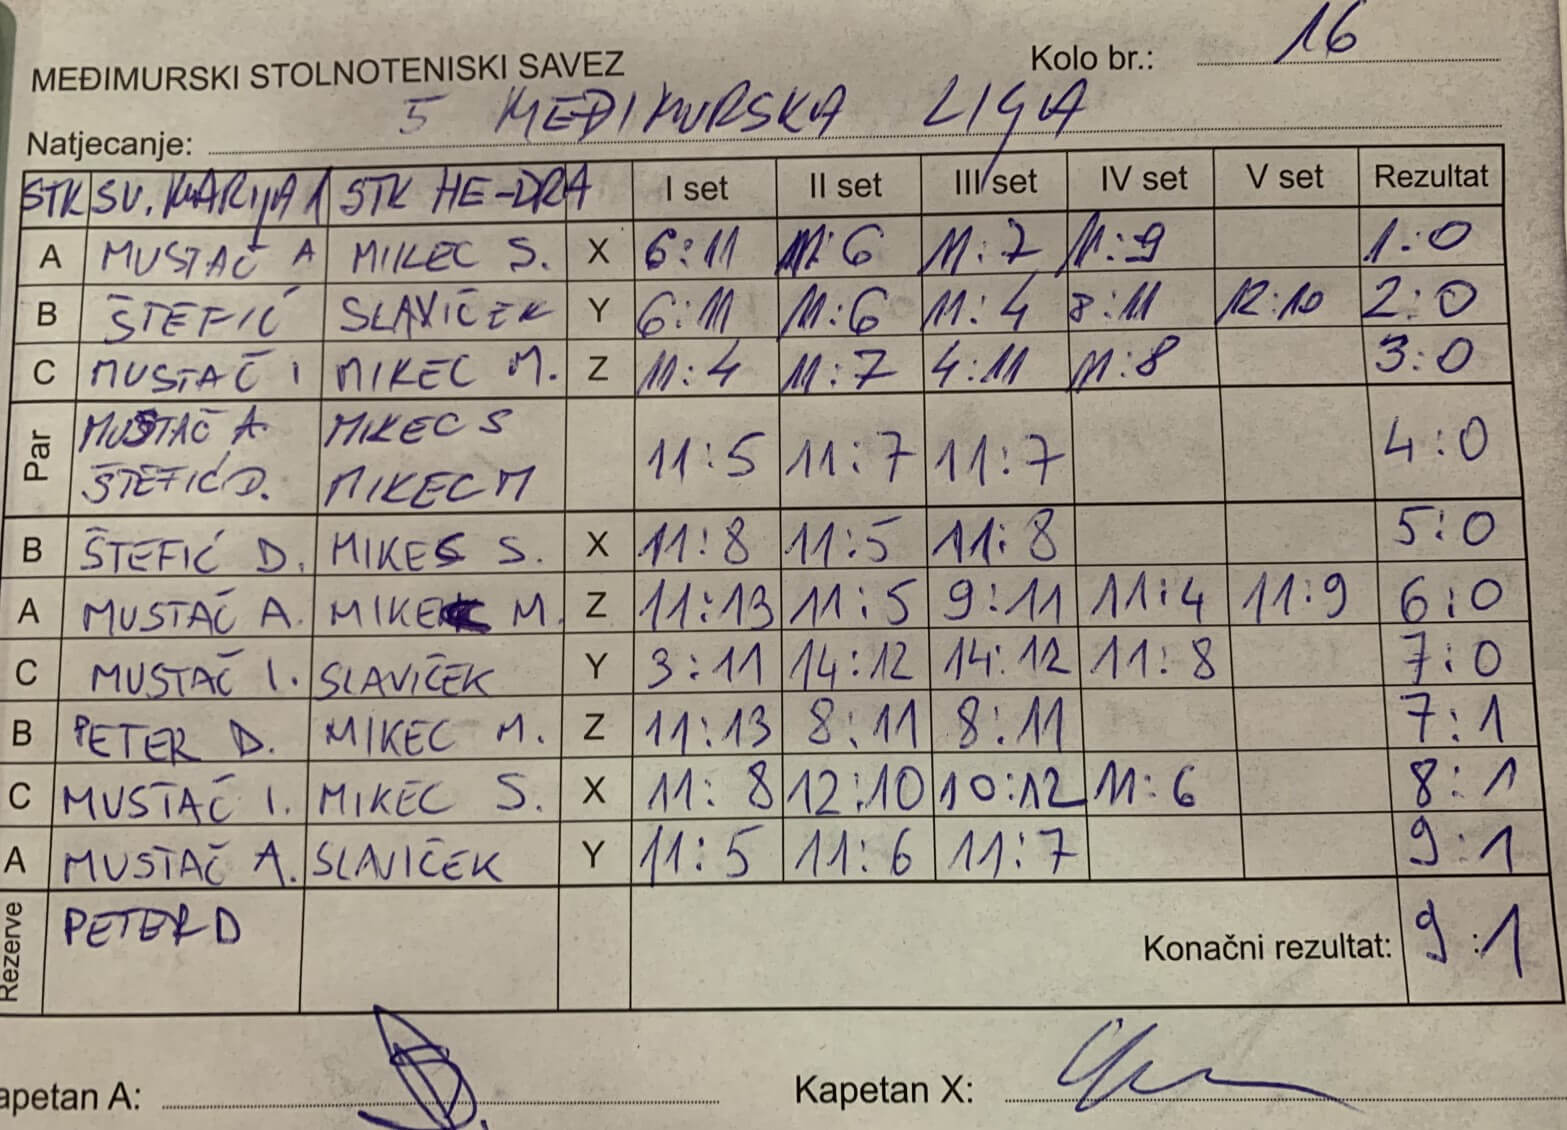 MEĐIMURSKI STOLNOTENISKI SAVEZ
Kolo br.: 16
Natjecanje: 5 MEĐIMURSKA LIGA
STK SV. MARIJA 1 STK HE-DRA I set II set III set IV set V set Rezultat
A MUSTAČ A MIKEC S. X 6:11 11:6 11:7 11:9 1:0
B ŠTEFIĆ SLAVIČEK Y 6:11 11:6 11:4 8:11 12:10 2:0
C MUSTAČ I MIKEC M. Z 11:4 11:7 4:11 11:8 3:0
Par MUSTAČ A. MIKEC S 11:5 11:7 11:7 4:0
ŠTEFIĆ D. MIKEC M
B ŠTEFIĆ D. MIKEC S. X 11:8 11:5 11:8 5:0
A MUSTAČ A. MIKEC M. Z 11:13 11:5 9:11 11:4 11:9 6:0
C MUSTAČ I. SLAVIČEK Y 3:11 14:12 14:12 11:8 7:0
B PETER D. MIKEC M. Z 11:13 8:11 8:11 7:1
C MUSTAČ I. MIKEC S. X 11:8 12:10 10:12 11:6 8:1
A MUSTAČ A. SLAVIČEK Y 11:5 11:6 11:7 9:1
Rezerve PETER D Konačni rezultat: 9:1
apetan A: Kapetan X: